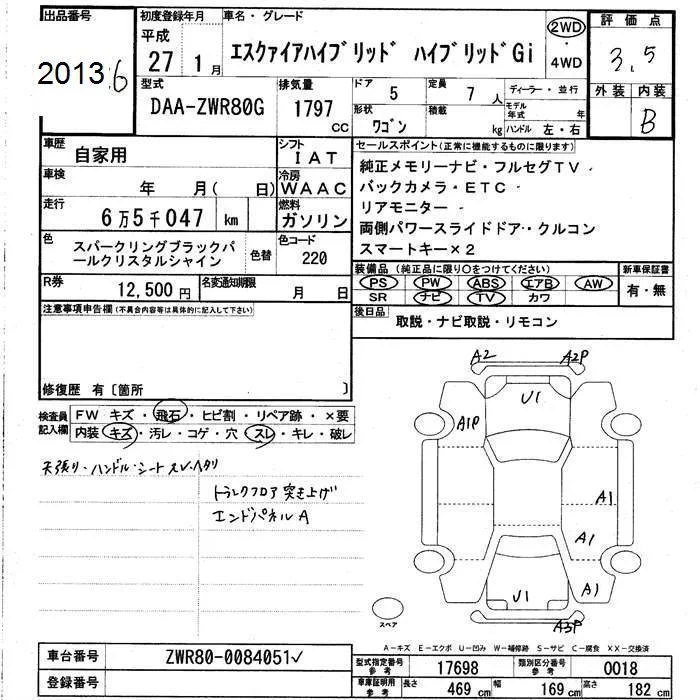 出品番号
20136
初度登録年月
平成
27 1月
車名・グレード
エスクァイアハイブリッド ハイブリッドGi
2WD
・
4WD
評価点
3.5
型式
DAA-ZWR80G
排気量
1797 cc
ドア 5
定員 7人
ディーラー・並行
形状 ワゴン
積載 kg
モデル年式 年
ハンドル 左・右
外装 内装
B
車歴 自家用
シフト IAT
車検 年 月( 日)
冷房 WAAC
走行 6万5千047 km
燃料 ガソリン
色 スパークリングブラックパールクリスタルシャイン
色替
色コード 220
R券 12,500円
名変通知期限 月 日
セールスポイント(正常に機能するものに限ります)
純正メモリーナビ・フルセグTV
バックカメラ・ETC
リアモニター
両側パワースライドドア・クルコン
スマートキー×2
装備品(純正品に限り○をつけてください)
PS PW ABS エアB AW
SR ナビ TV カワ
新車保証書
有・無
後日品 取説・ナビ取説・リモコン
注意事項申告欄(不具合内容等は具体的に記入して下さい)
修復歴 有〔箇所 〕
検査員記入欄
FW キズ・飛石・ヒビ割・リペア跡・×要
内装 キズ・汚レ・コゲ・穴・スレ・キレ・破レ
天張り・ハンドル・シート スレ・ヘタリ
トランクフロア 突き上げ
エンドパネル A
A2
A2P
U1
A1P
A1
A1
A1
U1
A3P
スペア
A-キズ E-エクボ U-凹み W-補修跡 S-サビ C-腐食 XX-交換済
車台番号 ZWR80-0084051✓
登録番号
型式指定番号 参考 17698
類別区分番号 参考 0018
車庫証明用 参考 長さ 469 cm 幅 169 cm 高さ 182 cm